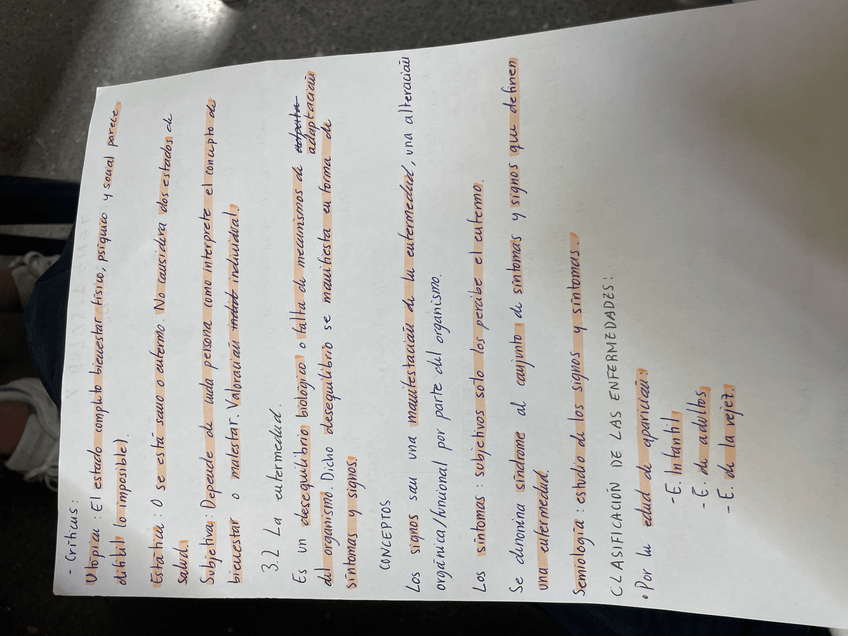 - Críticas:
Utópica: El estado completo bienestar físico, psíquico y social parece
difícil (o imposible).
Estática: O se está sano o enfermo. No considera dos estados de
salud.
Subjetiva: Depende de cada persona como interprete el concepto de
bienestar o malestar. Valoración individual.
3.2 La enfermedad.
Es un desequilibrio biológico o falta de mecanismos de adaptación
del organismo. Dicho desequilibrio se manifiesta en forma de
síntomas y signos
CONCEPTOS
Los signos son una manifestación de la enfermedad, una alteración
orgánica/funcional por parte del organismo.
Los síntomas: subjetivos solo los percibe el enfermo.
Se denomina síndrome al conjunto de síntomas y signos que definen
una enfermedad.
Semiología: estudio de los signos y síntomas.
CLASIFICACIÓN DE LAS ENFERMEDADES:
• Por la edad de aparición:
- E. Infantil
- E. de adultos
- E. de la vejez.